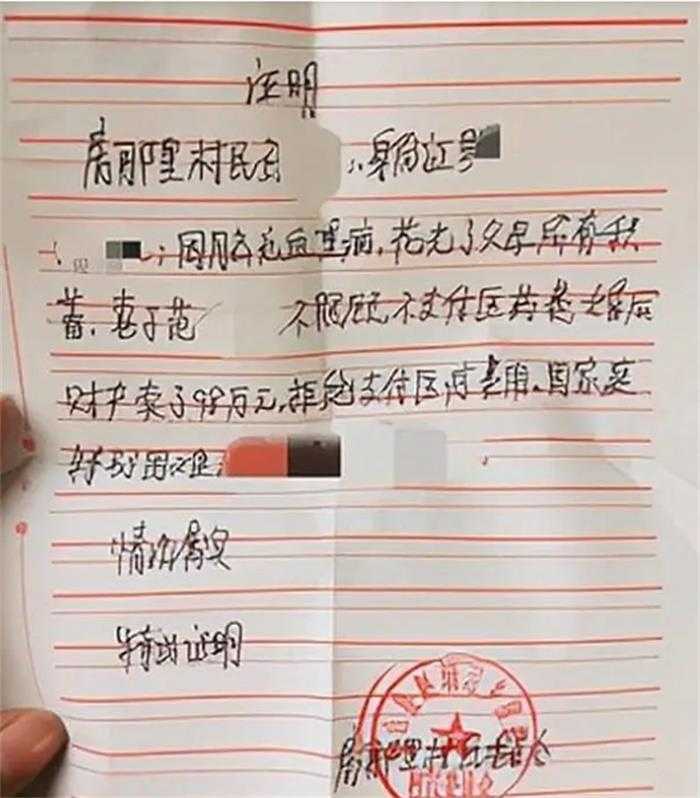 证明
唐那里村民 身份证号
因脑充血患病,花光了父母所有积
蓄,妻子范 不照顾不支付医药费大婚后
财产卖了98万元,拒绝支付医疗费用、因家庭
特别困难
情况属实
特此证明
唐那里村民委员会